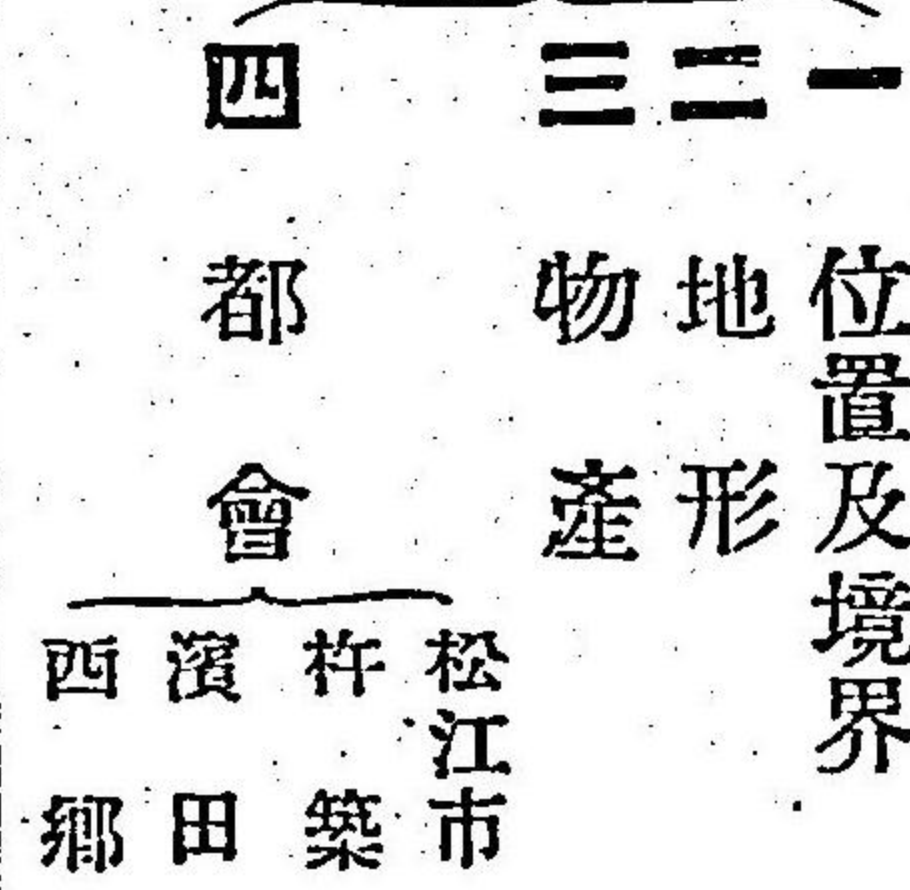 一 位置及境界
二 地形
三 物產
四 都會
松江市
杵築
濱田
西鄉